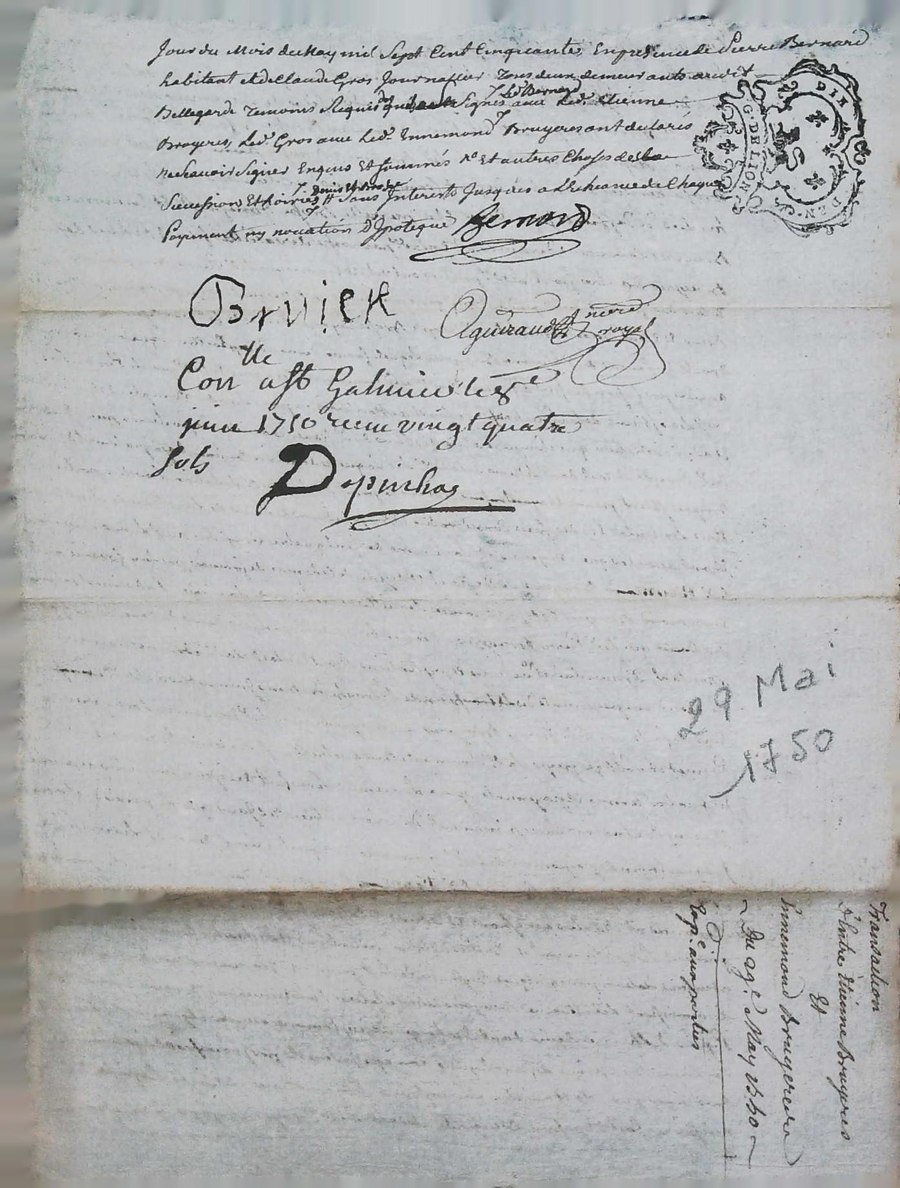 Jour du Mois de May mil Sept Cent Cinquante En presence de Pierre Bernard
habitant et de Claude Gros Journallier Tous deux demeurants audit
Bellegarde Temoins Requis qui Signés avec Led. Etienne
led Bernard
Bruyeres, Led. Gros avec Led. Ennemond Bruyeres ont declarés
ne Scavoir Signer Enquis Et Sommés et autres Choses de la
Succession Et Sans Interets Jusques a L'Echeance de Chaque
Payement ny novation D'Ipoteque Bernard
G. DE LION
DIX DEN.
Bruieir
Aguiraud Nre royal
Con lle
1750 recu vingt quatre
Sols Depinhac
29 Mai
1750
Transaction
D'Entre Etienne Bruyeres
Et
Ennemond Bruyeres
Du 29e May 1750
Exp. aux parties